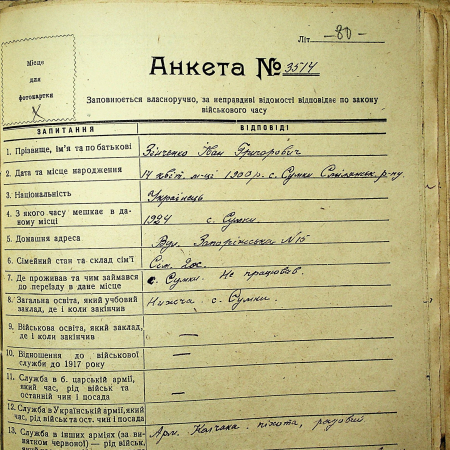 Літ. —80—
Місце
для
фотокартки
Анкета № 3514
Заповнюється власноручно, за неправдиві відомості відповідає по закону
військового часу
ЗАПИТАННЯ ВІДПОВІДІ
1. Прізвище, ім'я та по батькові Зінченко Іван Григорович
2. Дата та місце народження 14 квіт. м-ці 1900 р. с. Сумки Смілянськ. р-ну
3. Національність Українець
4. З якого часу мешкає в да-
ному місці 1924 с. Сумки
5. Домашня адреса Вул. Запоріжська № 15
6. Сімейний стан та склад сім'ї Сім. 2 ос.
7. Де проживав та чим займався
до переїзду в дане місце с. Сумки. Не працював.
8. Загальна освіта, який учбовий
заклад, де і коли закінчив Нижча с. Сумки.
9. Військова освіта, який заклад,
де і коли закінчив —
10. Відношення до військової
служби до 1917 року —
11. Служба в б. царській армії,
який час, рід військ та
останній чин і посада —
12. Служба в Українській армії, який
час, рід військ та ост. чин і посада —
13. Служба в інших арміях (за ви-
нятком червоної) — рід військ, Арм. Колчака. піхота, рядовий